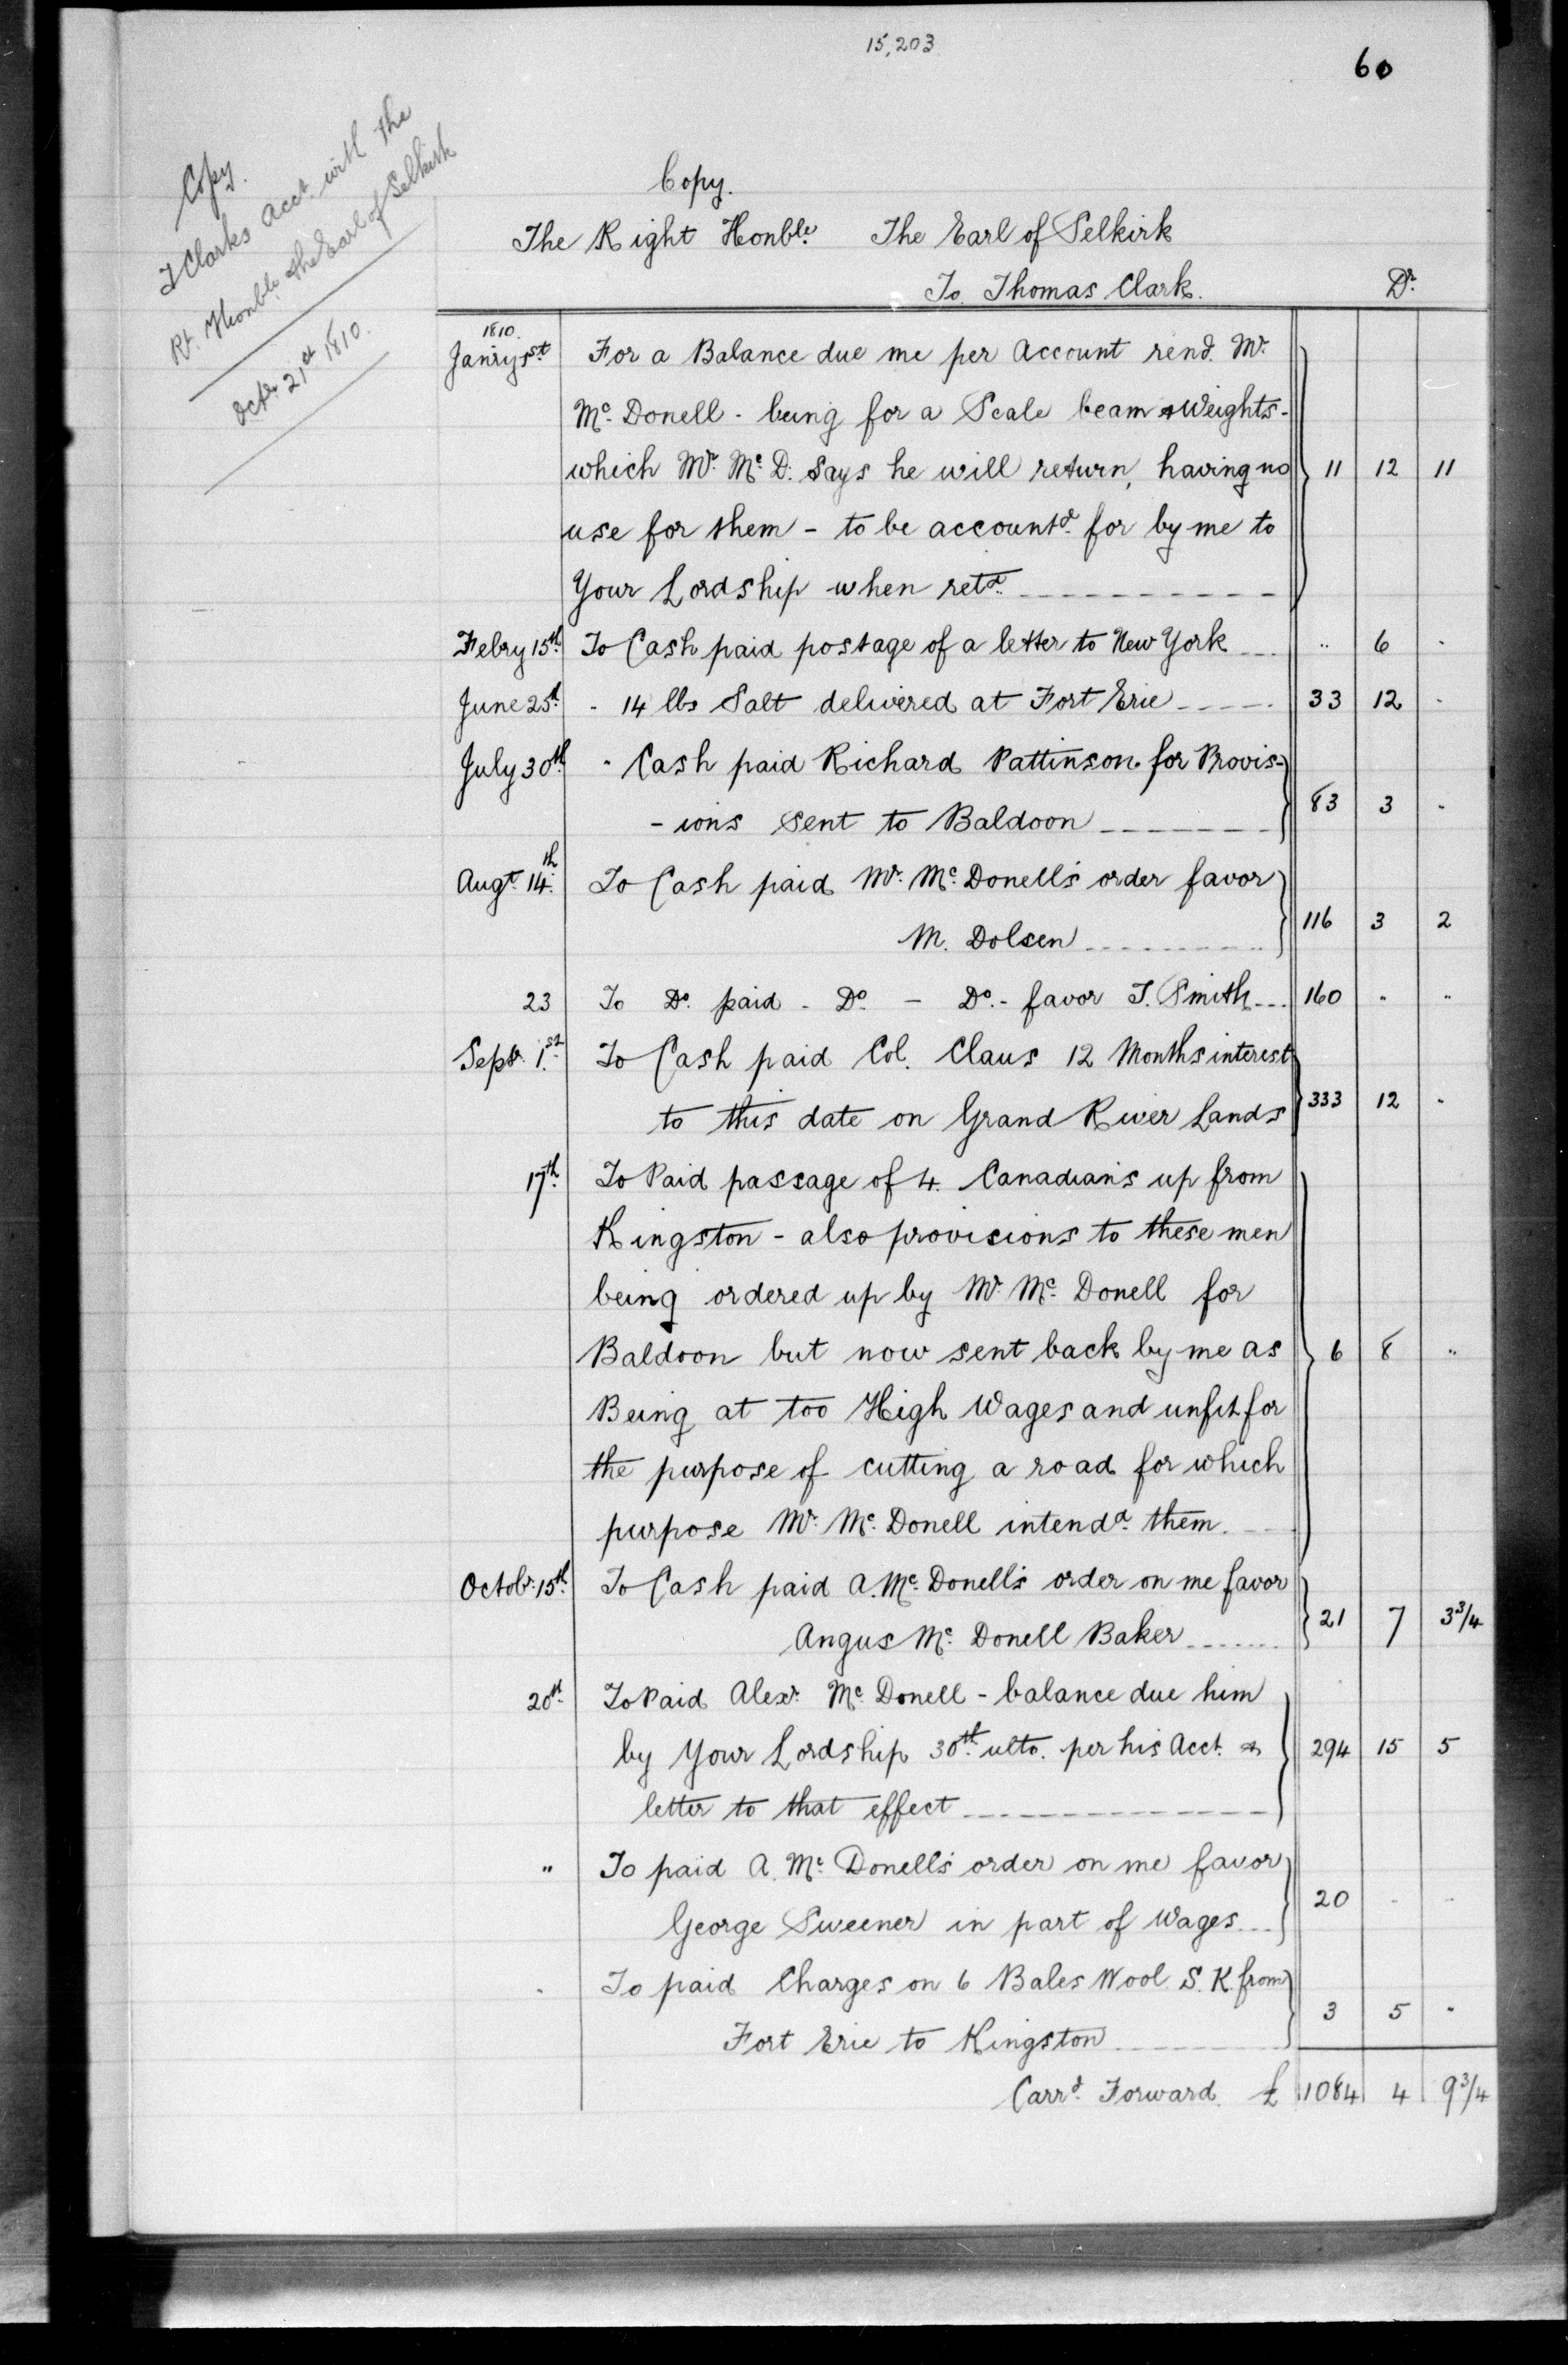 15,203
60
Copy.
T Clarks Acct. with the
Rt. Honble. the Earl of Selkirk
Octr. 21st 1810.
Copy.
The Right Honble. The Earl of Selkirk
To Thomas Clark. Dr.
1810.
Janry 1st For a Balance due me per Account rend. Mr.
Mc. Donell - being for a Scale beam & Weights -
which Mr. Mc. D. says he will return, having no 11 12 11
use for them - to be accountd. for by me to
Your Lordship when retd.
Febry 15th. To Cash paid postage of a letter to New York .. 6 -
June 25th. - 14 lbs Salt delivered at Fort Erie 33 12 -
July 30th. " Cash paid Richard Pattinson for Provis-
- ions sent to Baldoon 83 3 -
Augt. 14th. To Cash paid Mr. Mc. Donell's order favor
M. Dolsen 116 3 2
23 To Do. paid - Do. - Do. - favor T. Smith 160 " "
Septr. 1st. To Cash paid Col. Claus 12 Months interest
to this date on Grand River Lands 333 12 -
17th. To Paid passage of 4. Canadians up from
Kingston - also provisions to these men
being ordered up by Mr. Mc. Donell for
Baldoon but now sent back by me as 6 8 "
Being at too High Wages and unfit for
the purpose of cutting a road for which
purpose Mr. Mc. Donell intendd. them.
Octobr. 15th. To Cash paid A. Mc. Donell's order on me favor
Angus Mc. Donell Baker 21 7 3 3/4
20th. To Paid Alexr. Mc. Donell - balance due him
by Your Lordship 30th. ulto. per his Acct. & 294 15 5
letter to that effect
" To paid A. Mc. Donell's order on me favor
George Sweener in part of Wages 20 - -
" To paid Charges on 6 Bales Wool S. K. from
Fort Erie to Kingston 3 5 "
Carrd. Forward. £ 1084 4 9 3/4